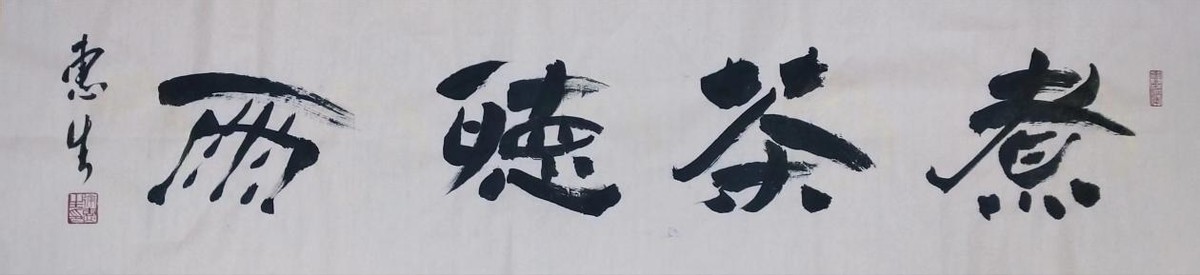 煮茶聴雨
惠生